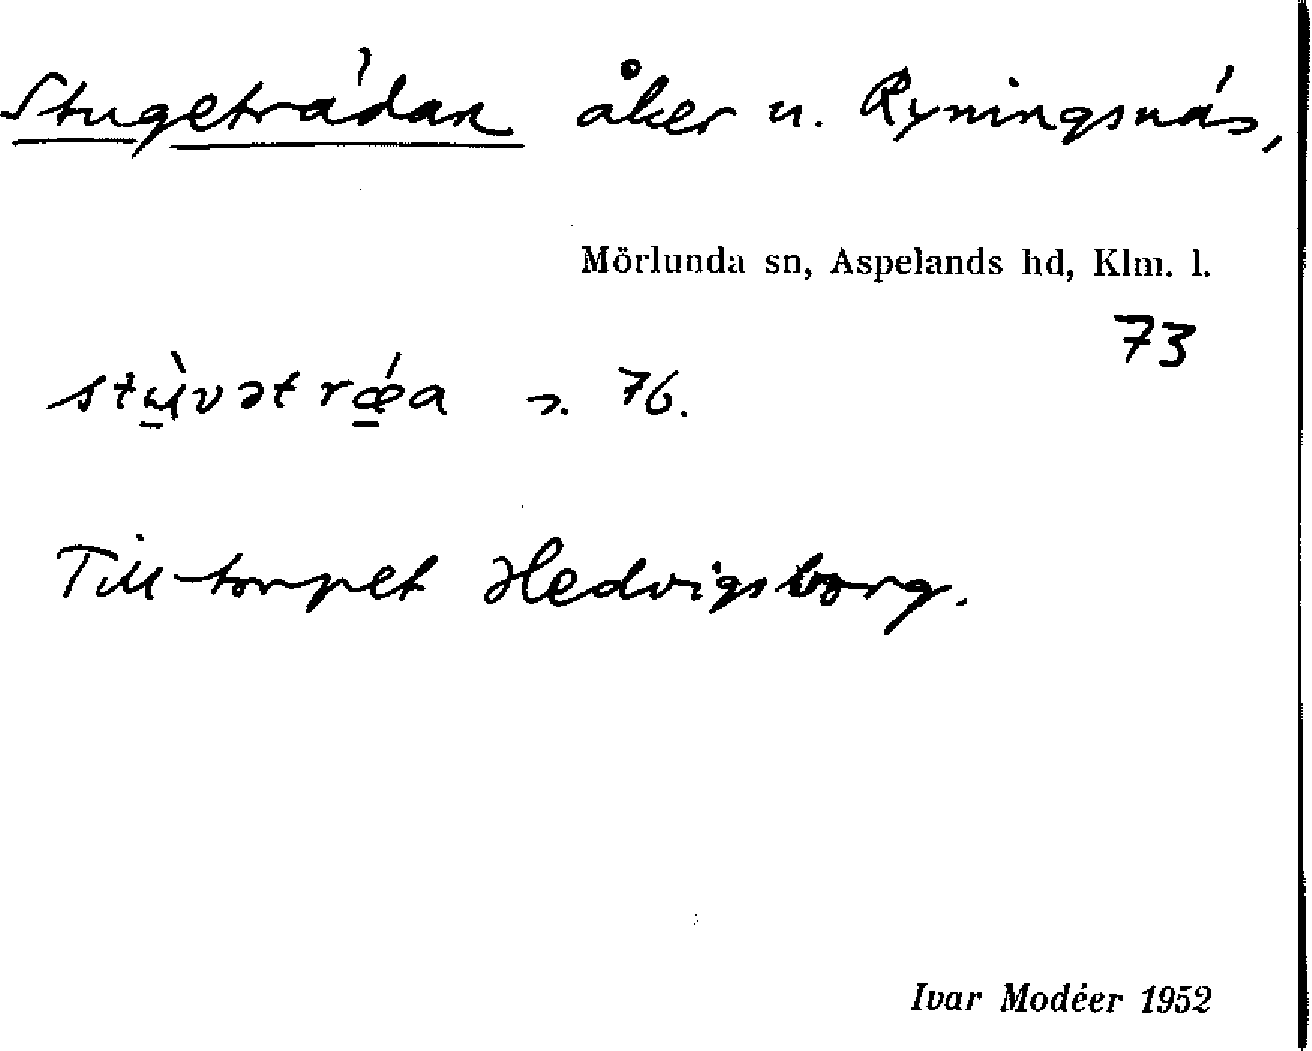 Stugeträdan åker u. Ryningsnäs,
Mörlunda sn, Aspelands hd, Klm. l.
73
stu̱̇̀vətrǽ̱a s. 76.
Till torpet Hedvigsborg.
Ivar Modéer 1952